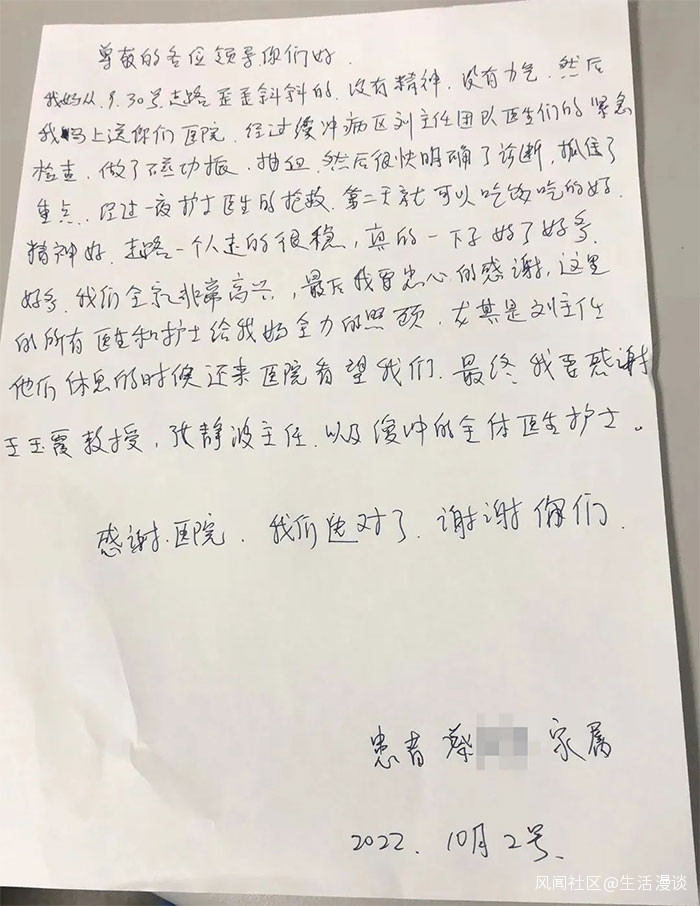 尊敬的各位领导你们好.
我妈从.9.30号走路歪歪斜斜的.没有精神.没有力气.然后
我马上送你们医院.经过缓冲病区刘主任团队医生们的紧急
检查.做了磁功振.抽血.然后很快明确了诊断,抓住了
重点.经过一夜护士医生的抢救.第二天就可以吃饭吃的好.
精神好.走路一个人走的很稳,真的一下子好了好多.
好多.我们全家非常高兴,最后我要忠心的感谢,这里
的所有医生和护士给我妈全力的照顾.尤其是刘主任
他们休息的时候还来医院看望我们.最终我要感谢
王玉霞教授,张静波主任.以及缓冲的全体医生护士。
感谢.医院.我们选对了.谢谢你们.
患者 蔡 家属
2022.10月2号、
风闻社区@生活漫谈